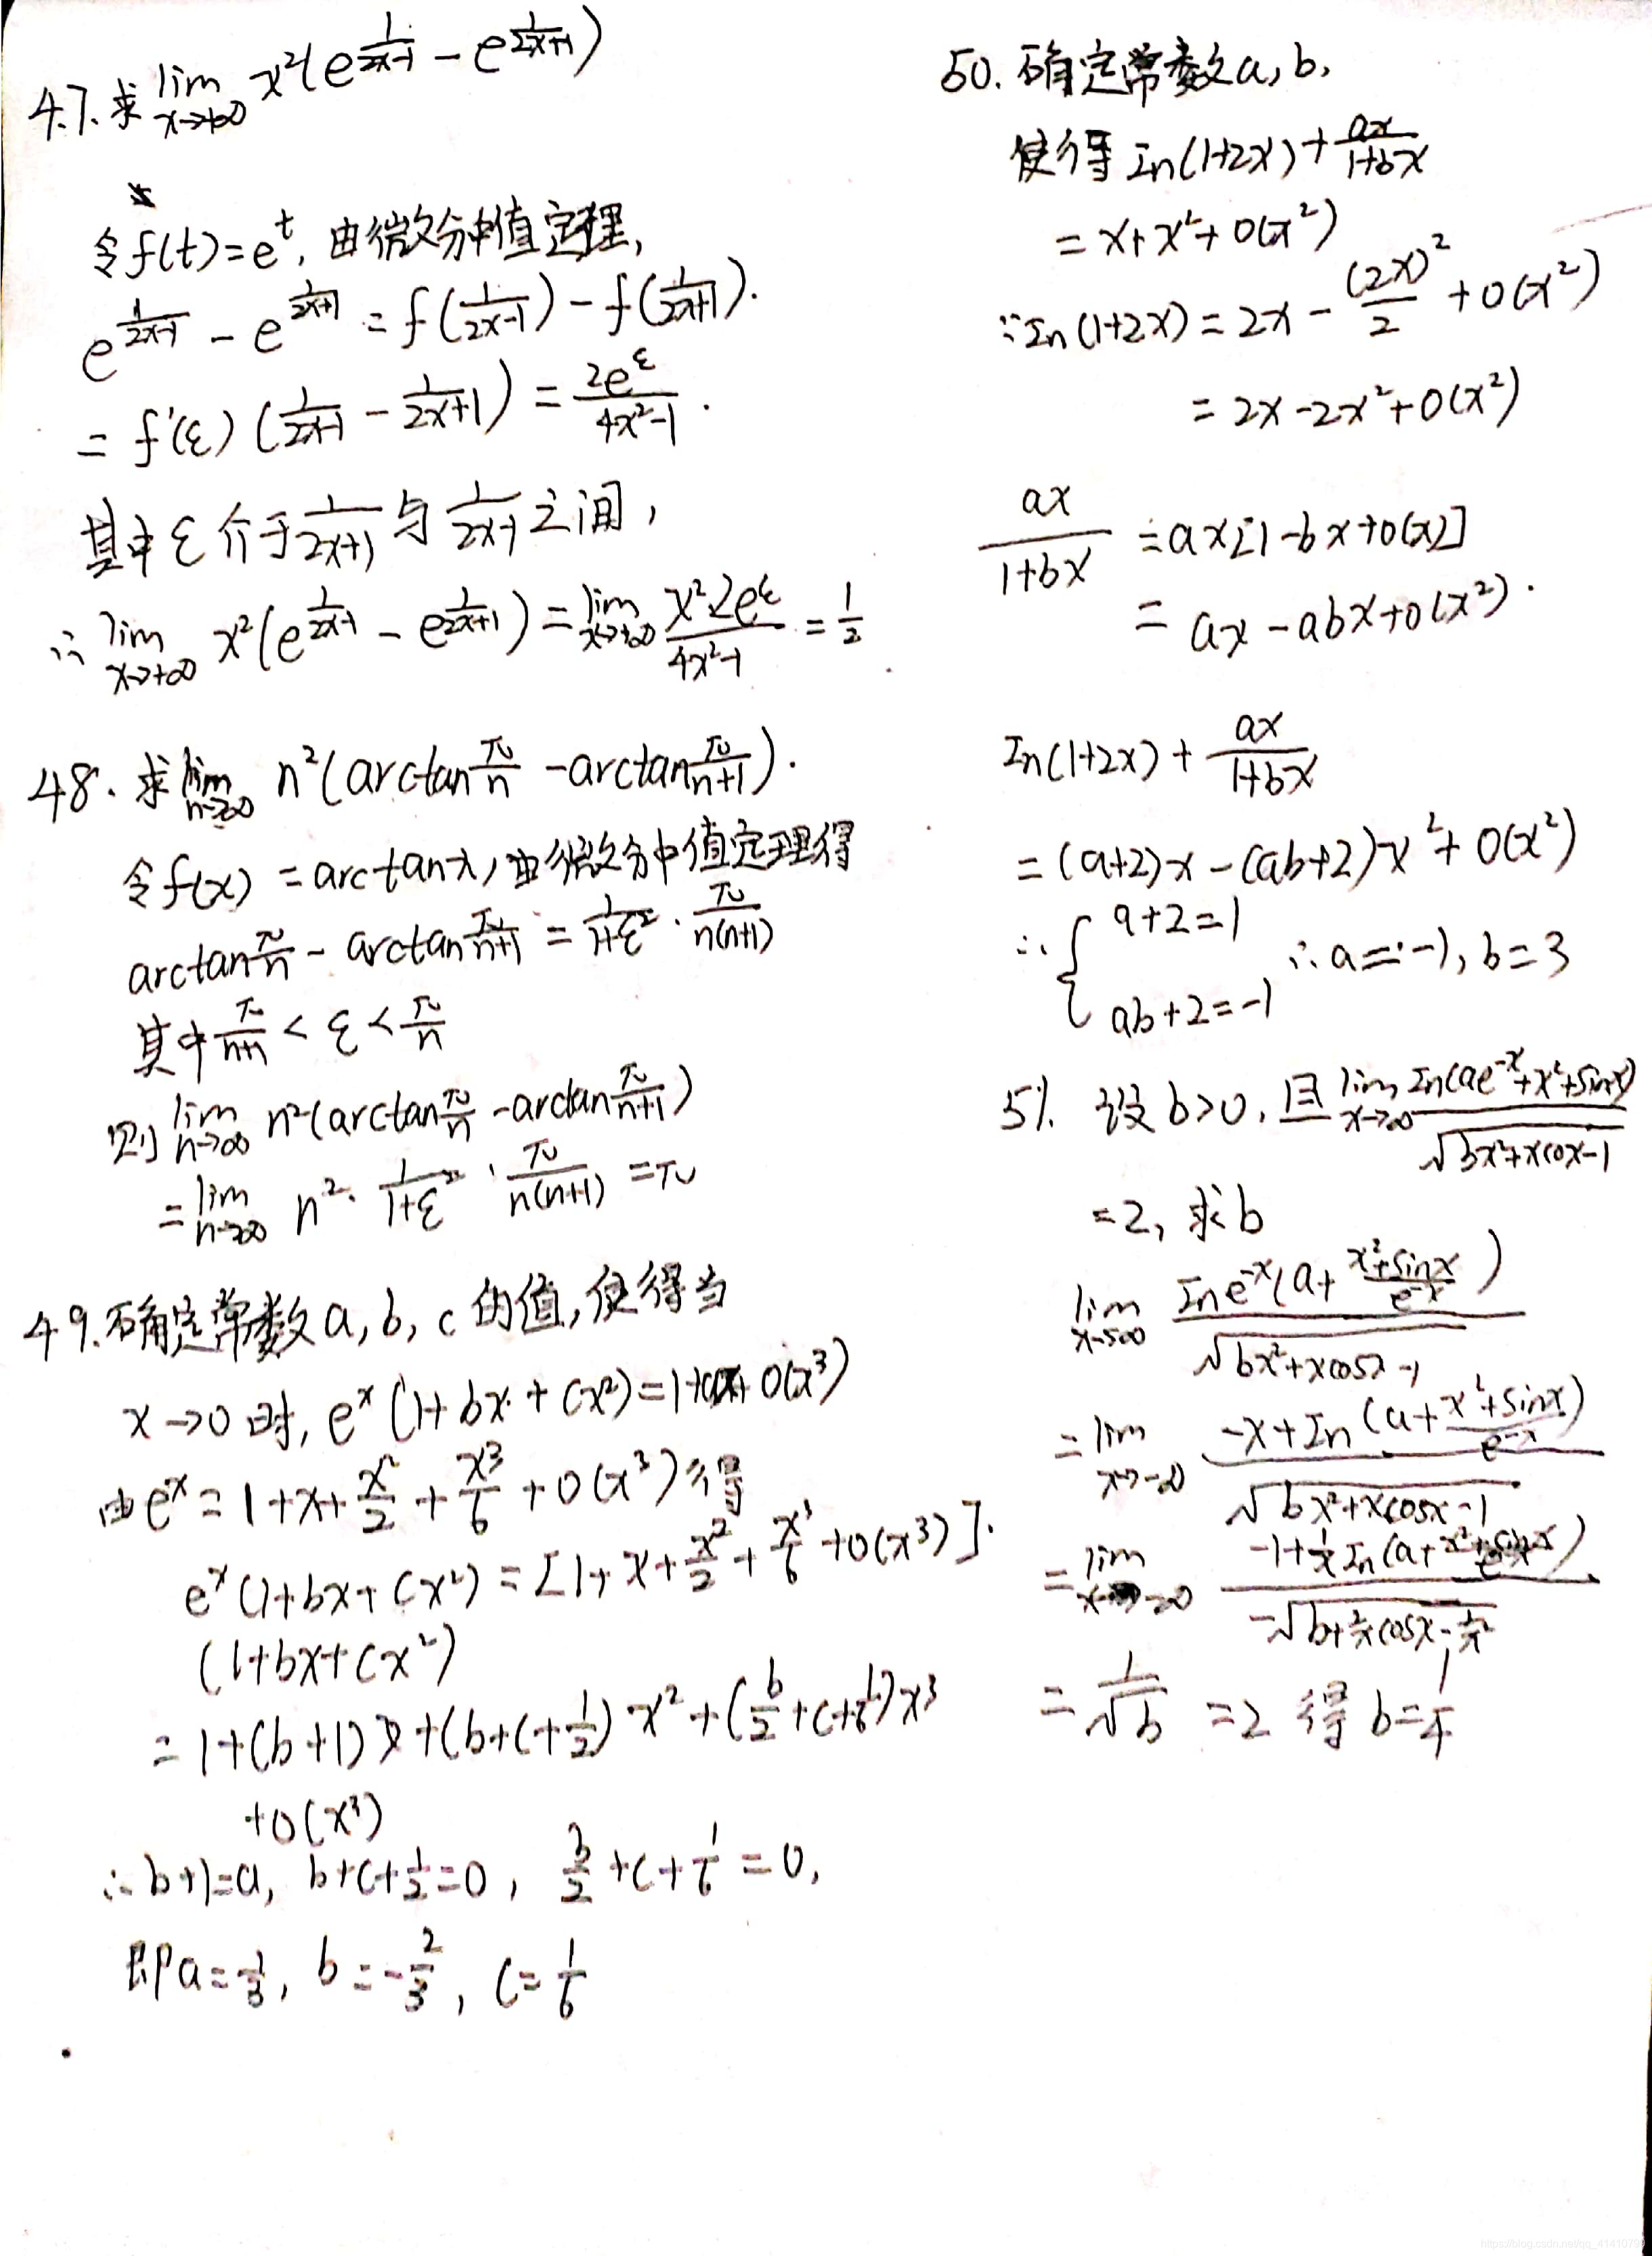 47. 求 lim x→+∞ x²(e^(1/(2x-1)) - e^(1/(2x+1)))
令f(t)=e^t, 由微分中值定理,
e^(1/(2x-1)) - e^(1/(2x+1)) = f(1/(2x-1)) - f(1/(2x+1)).
= f'(ξ) (1/(2x-1) - 1/(2x+1)) = 2e^ξ/(4x²-1).
其中ξ介于1/(2x+1)与1/(2x-1)之间,
∴ lim x→+∞ x²(e^(1/(2x-1)) - e^(1/(2x+1))) = lim x→+∞ x²·2e^ξ/(4x²-1) = 1/2
48. 求 lim n→∞ n²(arctan π/n - arctan π/(n+1)).
令f(x) = arctanx, 由微分中值定理得
arctan π/n - arctan π/(n+1) = 1/(1+ξ²) · π/(n(n+1))
其中 π/(n+1) < ξ < π/n
则 lim n→∞ n²(arctan π/n - arctan π/(n+1))
= lim n→∞ n² · 1/(1+ξ²) · π/(n(n+1)) = π
49. 确定常数a, b, c的值, 使得当
x→0时, e^x(1+bx+cx²)=1+ax+o(x³)
由e^x = 1+x+x²/2+x³/6+o(x³)得
e^x(1+bx+cx²) = [1+x+x²/2+x³/6+o(x³)]·
(1+bx+cx²)
= 1+(b+1)x+(b+c+1/2)·x²+(b/2+c+1/6)x³
+o(x³)
∴ b+1=a, b+c+1/2=0, b/2+c+1/6=0,
即a=1/3, b=-2/3, c=1/6
50. 确定常数a, b,
使得 ln(1+2x)+ax/(1+bx)
= x+x²+o(x²)
∵ ln(1+2x) = 2x - (2x)²/2 + o(x²)
= 2x-2x²+o(x²)
ax/(1+bx) = ax[1-bx+o(x)]
= ax-abx+o(x²).
ln(1+2x) + ax/(1+bx)
= (a+2)x-(ab+2)x²+o(x²)
∴ { a+2=1
ab+2=-1 ∴ a=-1, b=3
51. 设b>0, 且 lim x→-∞ ln(ae^(-x)+x²+sinx)/√(bx²+xcosx-1)
=2, 求b
lim x→-∞ ln e^(-x)(a+(x²+sinx)/e^(-x)) / √(bx²+xcosx-1)
= lim x→-∞ (-x+ln(a+(x²+sinx)/e^(-x))) / √(bx²+xcosx-1)
= lim x→-∞ (-1+1/x ln(a+(x²+sinx)/e^(-x))) / -√(b+1/x cosx-1/x²)
= 1/√b =2 得 b=1/4